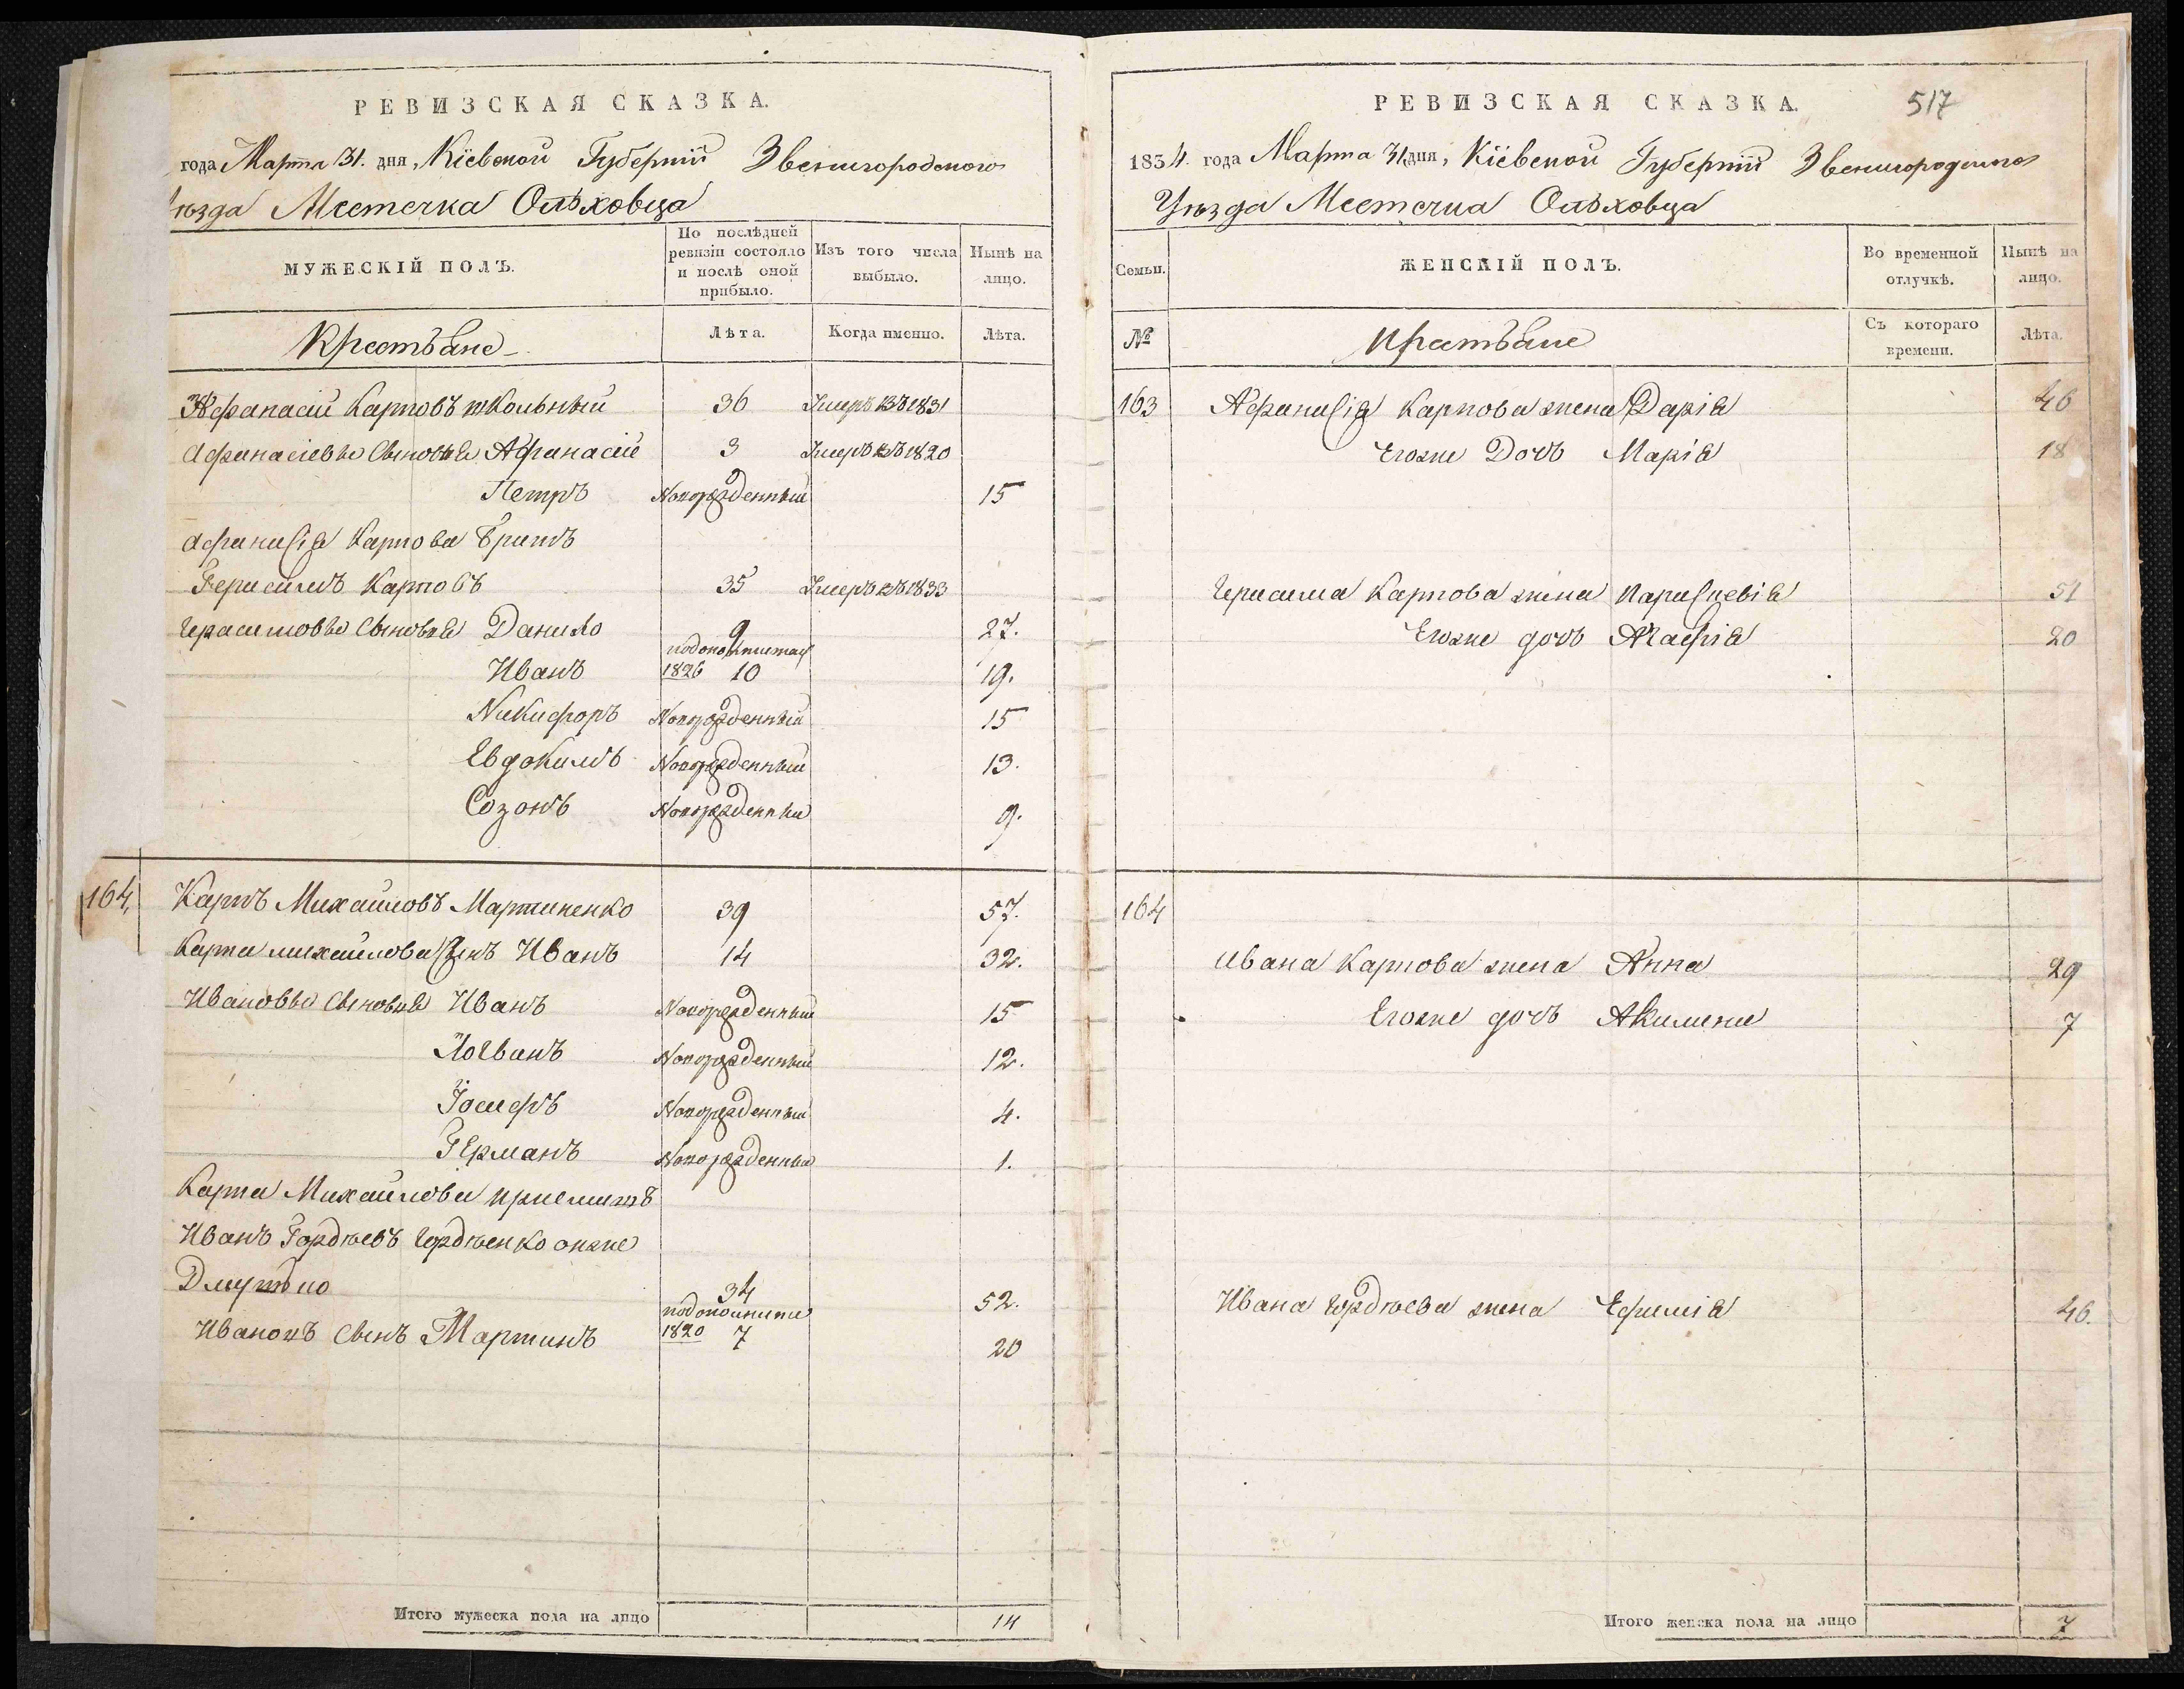 РЕВИЗСКАЯ СКАЗКА.
года Марта 31. дня, Кіевской Губерніи Звенигородского
уѣзда Местечка Ольховца
МУЖЕСКІЙ ПОЛЪ.
По послѣдней ревизіи состояло и послѣ оной прибыло.
Изъ того числа выбыло.
Нынѣ на лицо.
Крестьяне
Лѣта.
Когда именно.
Лѣта.
Афанасій Карповъ школьный 36 Умеръ въ 1831
Афанасіевы Сыновья Афанасій 3 Умеръ въ 1820
Петръ Новорожденный 15
Афанасія Карпова Братъ
Герасимъ Карповъ 35 Умеръ въ 1833
Герасимовы Сыновья Данило 9 27.
Иванъ 1826 10 19.
Никифоръ Новорожденный 15
Евдокимъ Новорожденный 13.
Созонъ Новорожденный 9.
164, Карпъ Михайловъ Мартиненко 39 57.
Карпа михайлова Сынъ Иванъ 14 32.
Ивановы Сыновья Иванъ Новорожденный 15
Логвинъ Новорожденный 12.
Іосифъ Новорожденный 4.
Германъ Новорожденный 1.
Карпа Михайлова приемышъ
Иванъ Гордѣевъ Гордѣенко онже
34 52.
Ивановъ Сынъ Мартинъ 1820 7 20
Итого мужеска пола на лицо 14
РЕВИЗСКАЯ СКАЗКА. 517
1834. года Марта 31 дня, Кіевской Губерніи Звенигородского
Уѣзда Местечка Ольховца
Семьи.
ЖЕНСКІЙ ПОЛЪ.
Во временной отлучкѣ.
Нынѣ на лицо.
№
Крестьяне
Съ котораго времени.
Лѣта.
163 Афанасія Карпова жена Дарія 46
Егоже Дочь Марія 18
Герасима Карпова жена Параскевія 51
Егоже дочь Агафія 20
164
Ивана Карпова жена Анна 29
Егоже дочь Акилина 7
Ивана Гордѣева жена Ефимія 46.
Итого женска пола на лицо 7